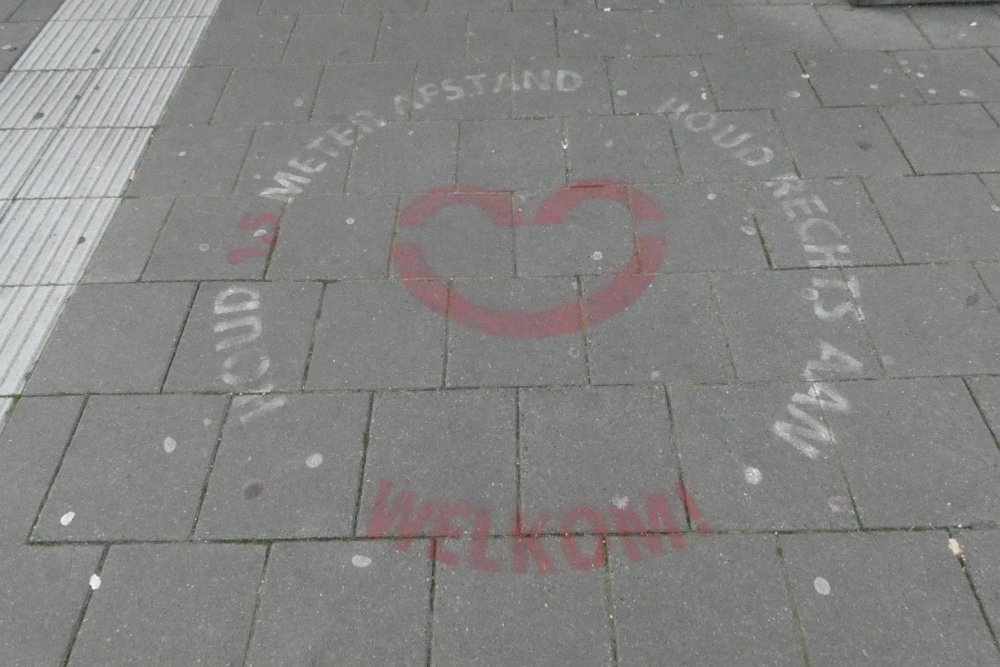 HOUD 1.5 METER AFSTAND
HOUD RECHTS AAN
WELKOM!